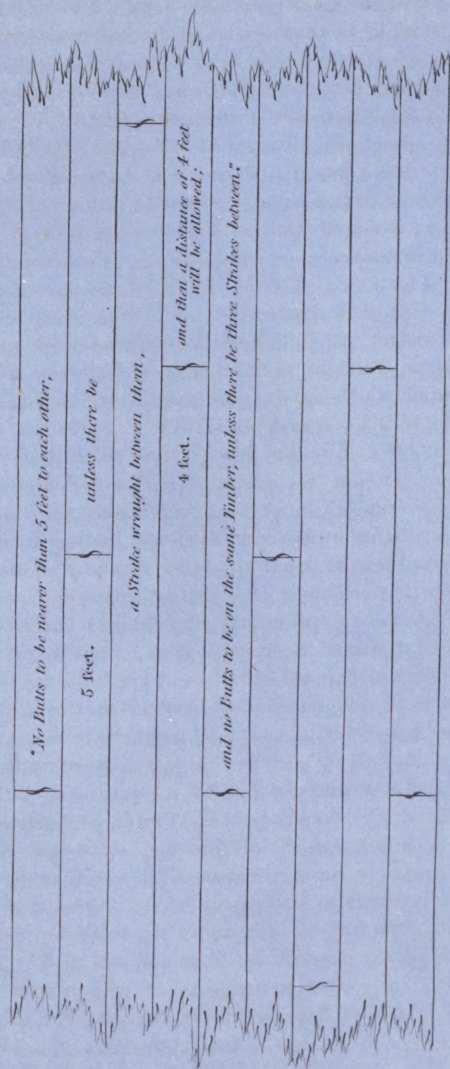 "No Butts to be nearer than 5 feet to each other,
5 feet.
unless there be
a Strake wrought between them,
4 feet.
and then a distance of 4 feet
will be allowed;
and no Butts to be on the same Timber, unless there be three Strakes between."